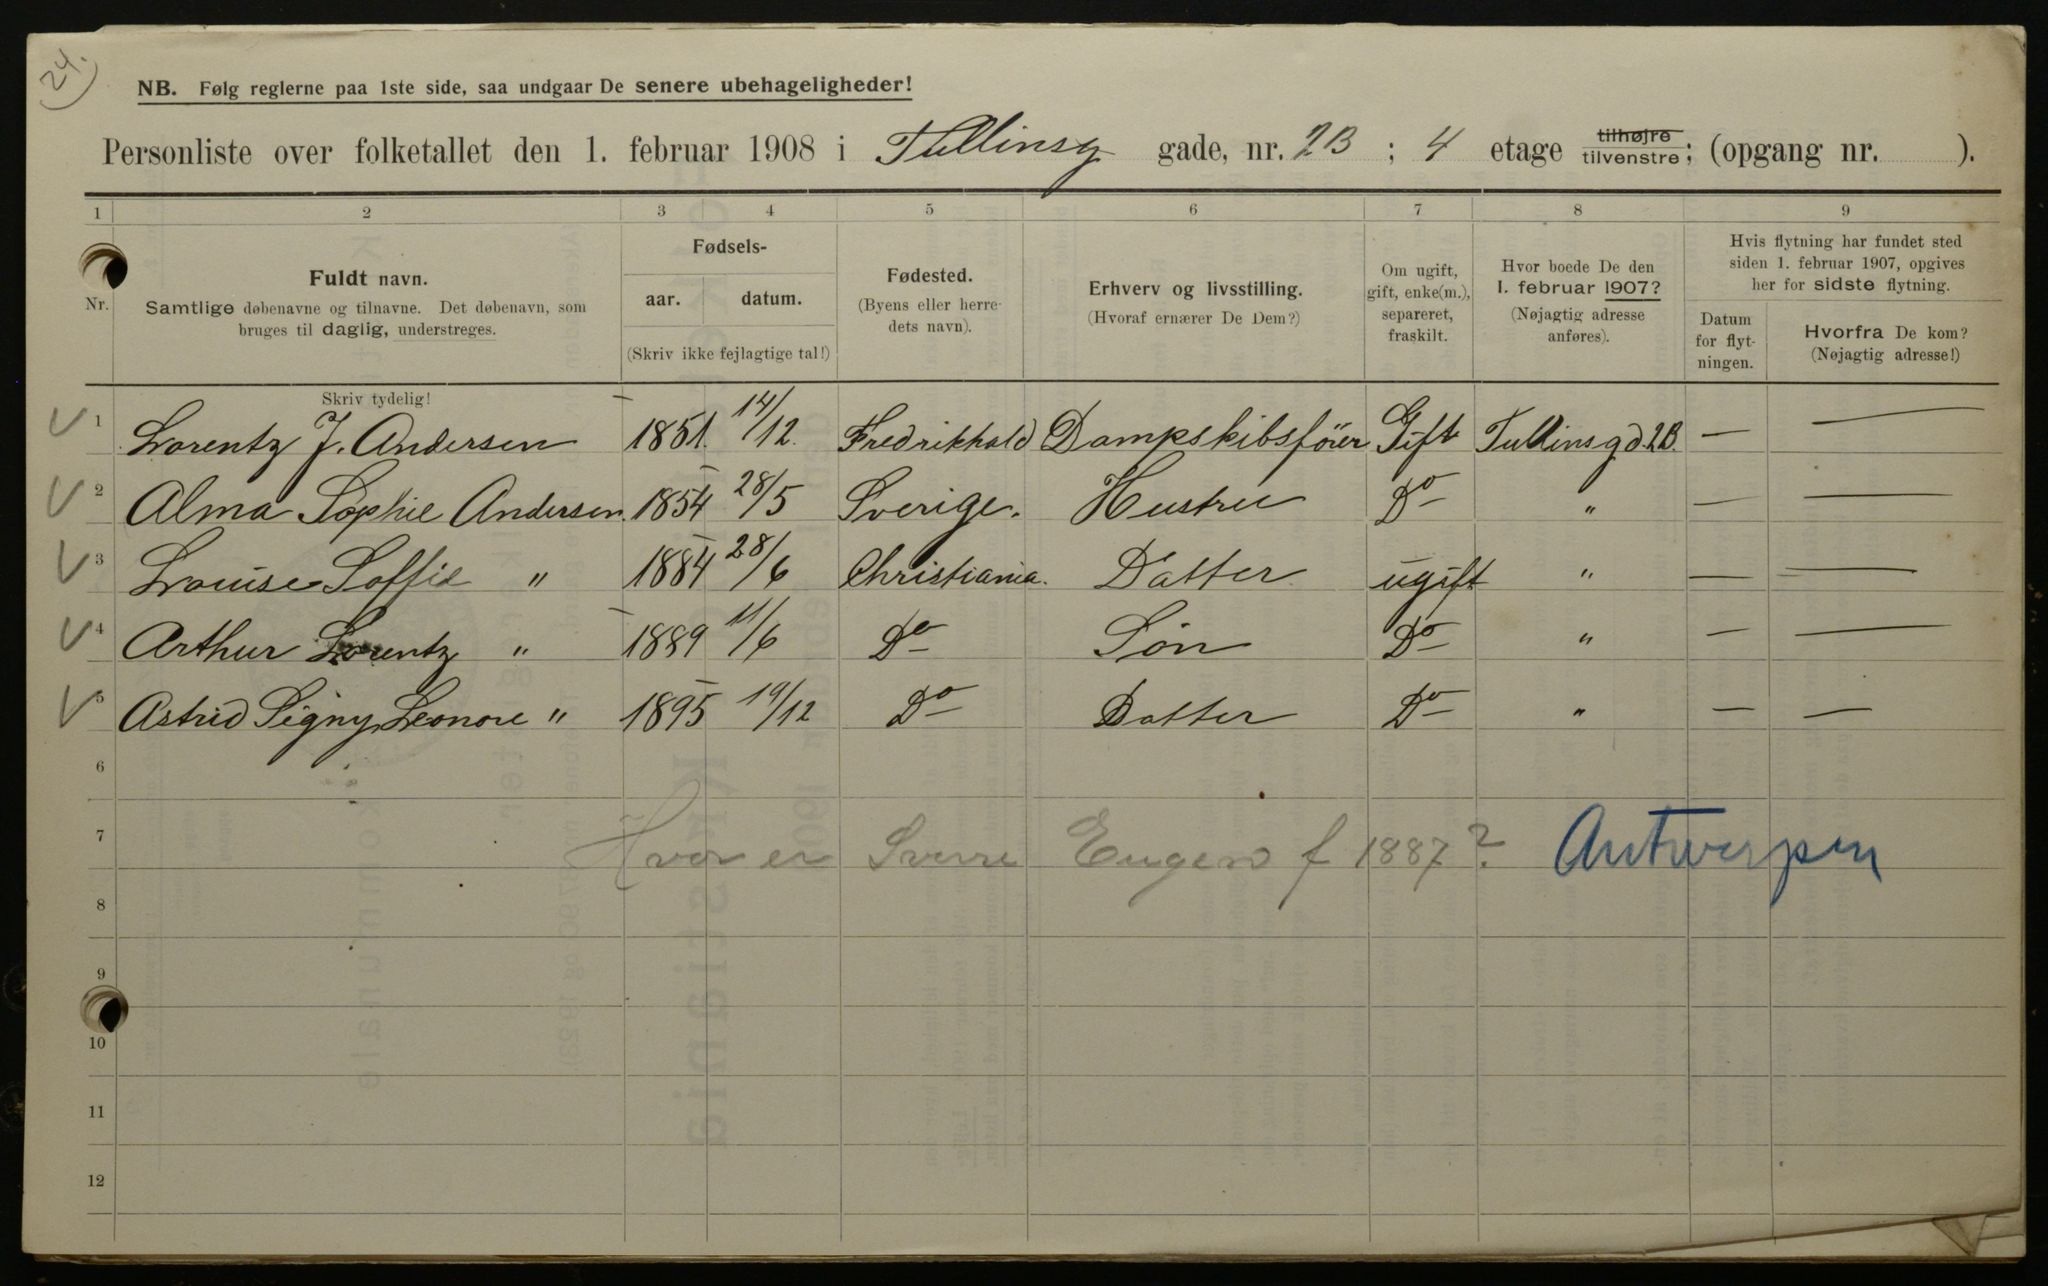 24.
NB. Følg reglerne paa 1ste side, saa undgaar De senere ubehageligheder!
Personliste over folketallet den 1. februar 1908 i Tullinsg gade, nr. 2B ; 4 etage tilhøjre tilvenstre; (opgang nr. ).
1 2 3 4 5 6 7 8 9
Nr.
Fuldt navn.
Samtlige døbenavne og tilnavne. Det døbenavn, som
bruges til daglig, understreges.
Skriv tydelig!
Fødsels-
aar. datum.
(Skriv ikke fejlagtige tal!)
Fødested.
(Byens eller herre-
dets navn).
Erhverv og livsstilling.
(Hvoraf ernærer De Dem?)
Om ugift,
gift, enke(m.),
separeret,
fraskilt.
Hvor boede De den
1. februar 1907?
(Nøjagtig adresse
anføres).
Hvis flytning har fundet sted
siden 1. februar 1907, opgives
her for sidste flytning.
Datum
for flyt-
ningen.
Hvorfra De kom?
(Nøjagtig adresse!)
1 Lorentz J. Andersen 1851. 14/12. Fredrikhald Dampskibsförer Gift Tullinsgd. 2B. — —
2 Alma Sophie Andersen. 1854 28/5 Sverige. Hustru Do " — —
3 Louise Soffie " 1884 28/6 Christiania. Datter ugift " — —
4 Arthur Lorentz " 1889 11/6 Do Sön Do " — —
5 Astrid Signy Leonore " 1895 19/12 Do Datter Do " — —
6
7 Hvor er Sverre Eugen f 1887? Antwerpen
8
9
10
11
12